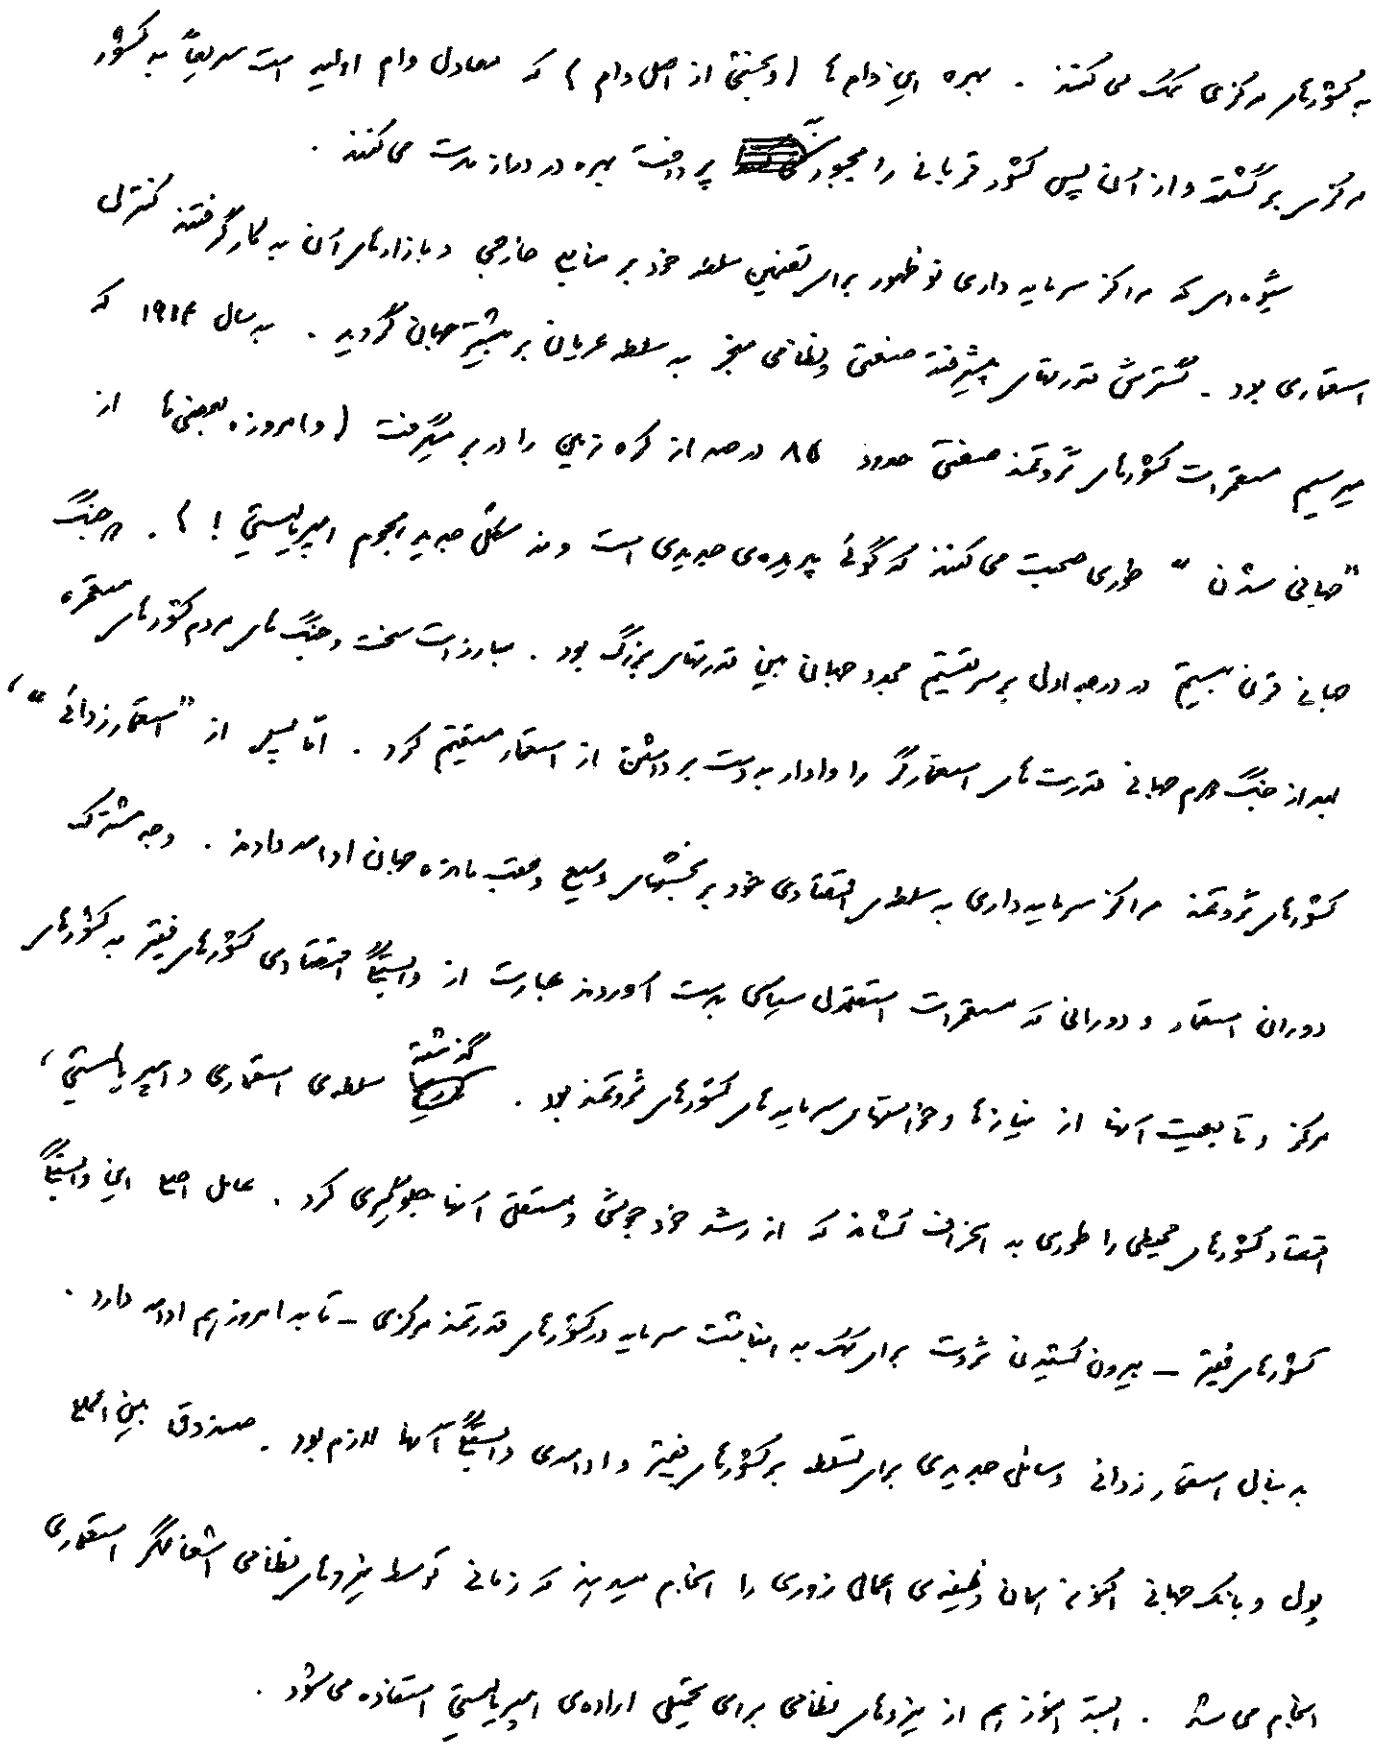 به کشورهای مرکزی کمک می کنند . بهره این وام ها ( و بخشی از اصل وام ) که معادل وام اولیه است سریعاً به کشور
مرکزی برگشته و از آن پس کشور قربانی را مجبور به پرداخت بهره در دراز مدت می کنند .
شیوه ای که مراکز سرمایه داری نو ظهور برای تضمین سلطه خود بر منابع خارجی و بازارهای آن به کار گرفتند کنترل
استعماری بود . گسترش قدرتهای پیشرفته صنعتی و نظامی منجر به سلطه عریان بر بیشتر جهان گردید . به سال ۱۹۱۴ که
میرسیم مستعمرات کشورهای ثروتمند صنعتی حدود ۸۵ درصد از کره زمین را در بر میگرفت ( و امروزه بعضی ها از
"جهانی شدن " طوری صحبت می کنند که گوئی پدیده‌ی جدیدی است و نه شکل جدید هجوم امپریالیستی ! ) . دو جنگ
جهانی قرن بیستم در درجه اول بر سر تقسیم مجدد جهان بین قدرتهای بزرگ بود . مبارزات سخت و جنگ های مردم کشورهای مستعمره
بعد از جنگ دوم جهانی قدرت های استعمارگر را وادار به دست برداشتن از استعمار مستقیم کرد . امّا پس از "استعمارزدائی " ،
کشورهای ثروتمند مراکز سرمایه داری به سلطه اقتصادی خود بر بخشهای وسیع و عقب مانده جهان ادامه دادند . وجه مشترک
دوران استعمار و دورانی که مستعمرات استقلال سیاسی بدست آوردند عبارت از وابستگی اقتصادی کشورهای فقیر به کشورهای
مرکز و تابعیت آنها از نیازها و خواستهای سرمایه های کشورهای ثروتمند بود . گذشته سلطه‌ی استعماری و امپریالیستی ،
اقتصاد کشورهای محیطی را طوری به انحراف کشاند که از رشد خود جوش و مستقل آنها جلوگیری کرد . عامل اصلی این وابستگی
کشورهای فقیر – بیرون کشیدن ثروت برای کمک به انباشت سرمایه در کشورهای قدرتمند مرکزی – تا به امروز هم ادامه دارد .
به دنبال استعمار زدائی وسائل جدیدی برای تسلط بر کشورهای فقیر و ادامه‌ی وابستگی آنها لازم بود . صندوق بین المللی
پول و بانک جهانی اکنون همان وظیفه‌ی اعمال زوری را انجام میدهند که زمانی توسط نیروهای نظامی اشغالگر استعماری
انجام می شد . البته هنوز هم از نیروهای نظامی برای تحمیل اراده‌ی امپریالیستی استفاده می شود .